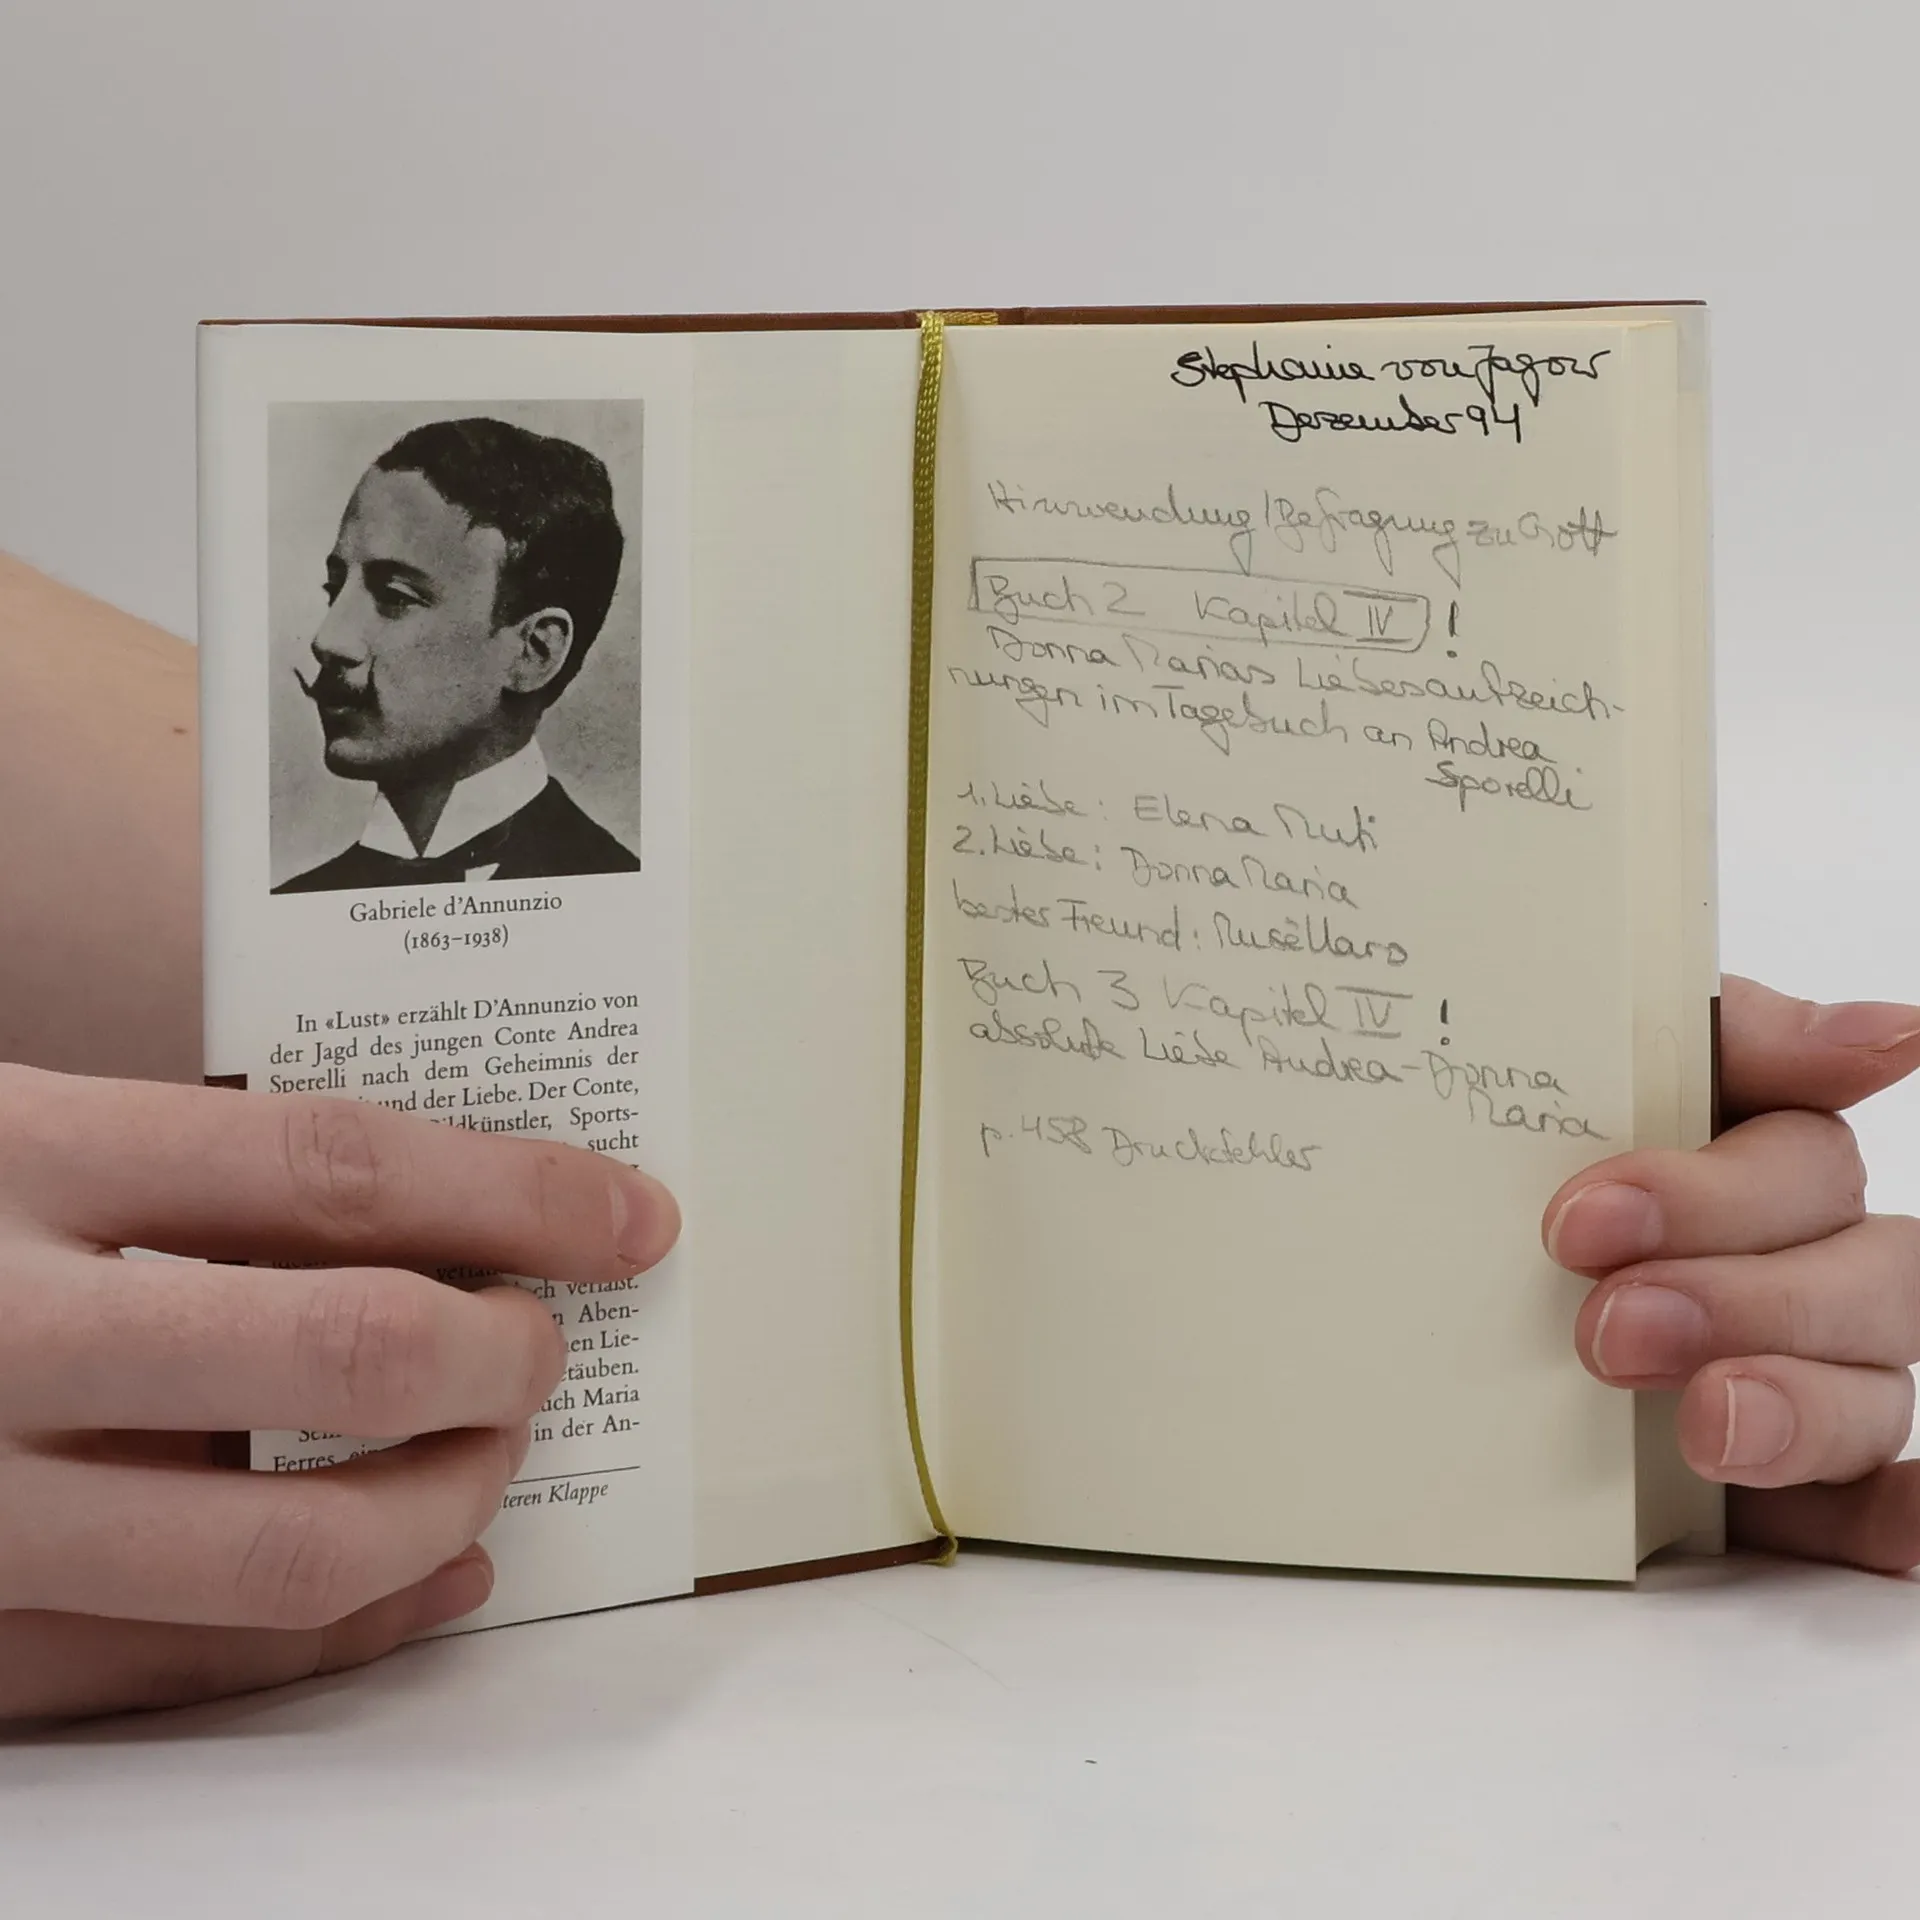 Gabriele d'Annunzio
(1863–1938)
In «Lust» erzählt D'Annunzio von
der Jagd des jungen Conte Andrea
Sperelli nach dem Geheimnis der
und der Liebe. Der Conte,
Sports-
sucht
verfaßt.
Aben-
Lie-
Maria
in der An-
Ferres
Klappe
Stephanie von Jagow
Dezember 94
Hinwendung/Befragung zu Gott
Buch 2 Kapitel IV !
Donna Marias Liebesaufzeich-
nungen im Tagebuch an Andrea
Sporelli
1. Liebe: Elena Muti
2. Liebe: Donna Maria
bester Freund: Musèllaro
Buch 3 Kapitel IV !
absolute Liebe Andrea-Donna
Maria
p. 458 Druckfehler